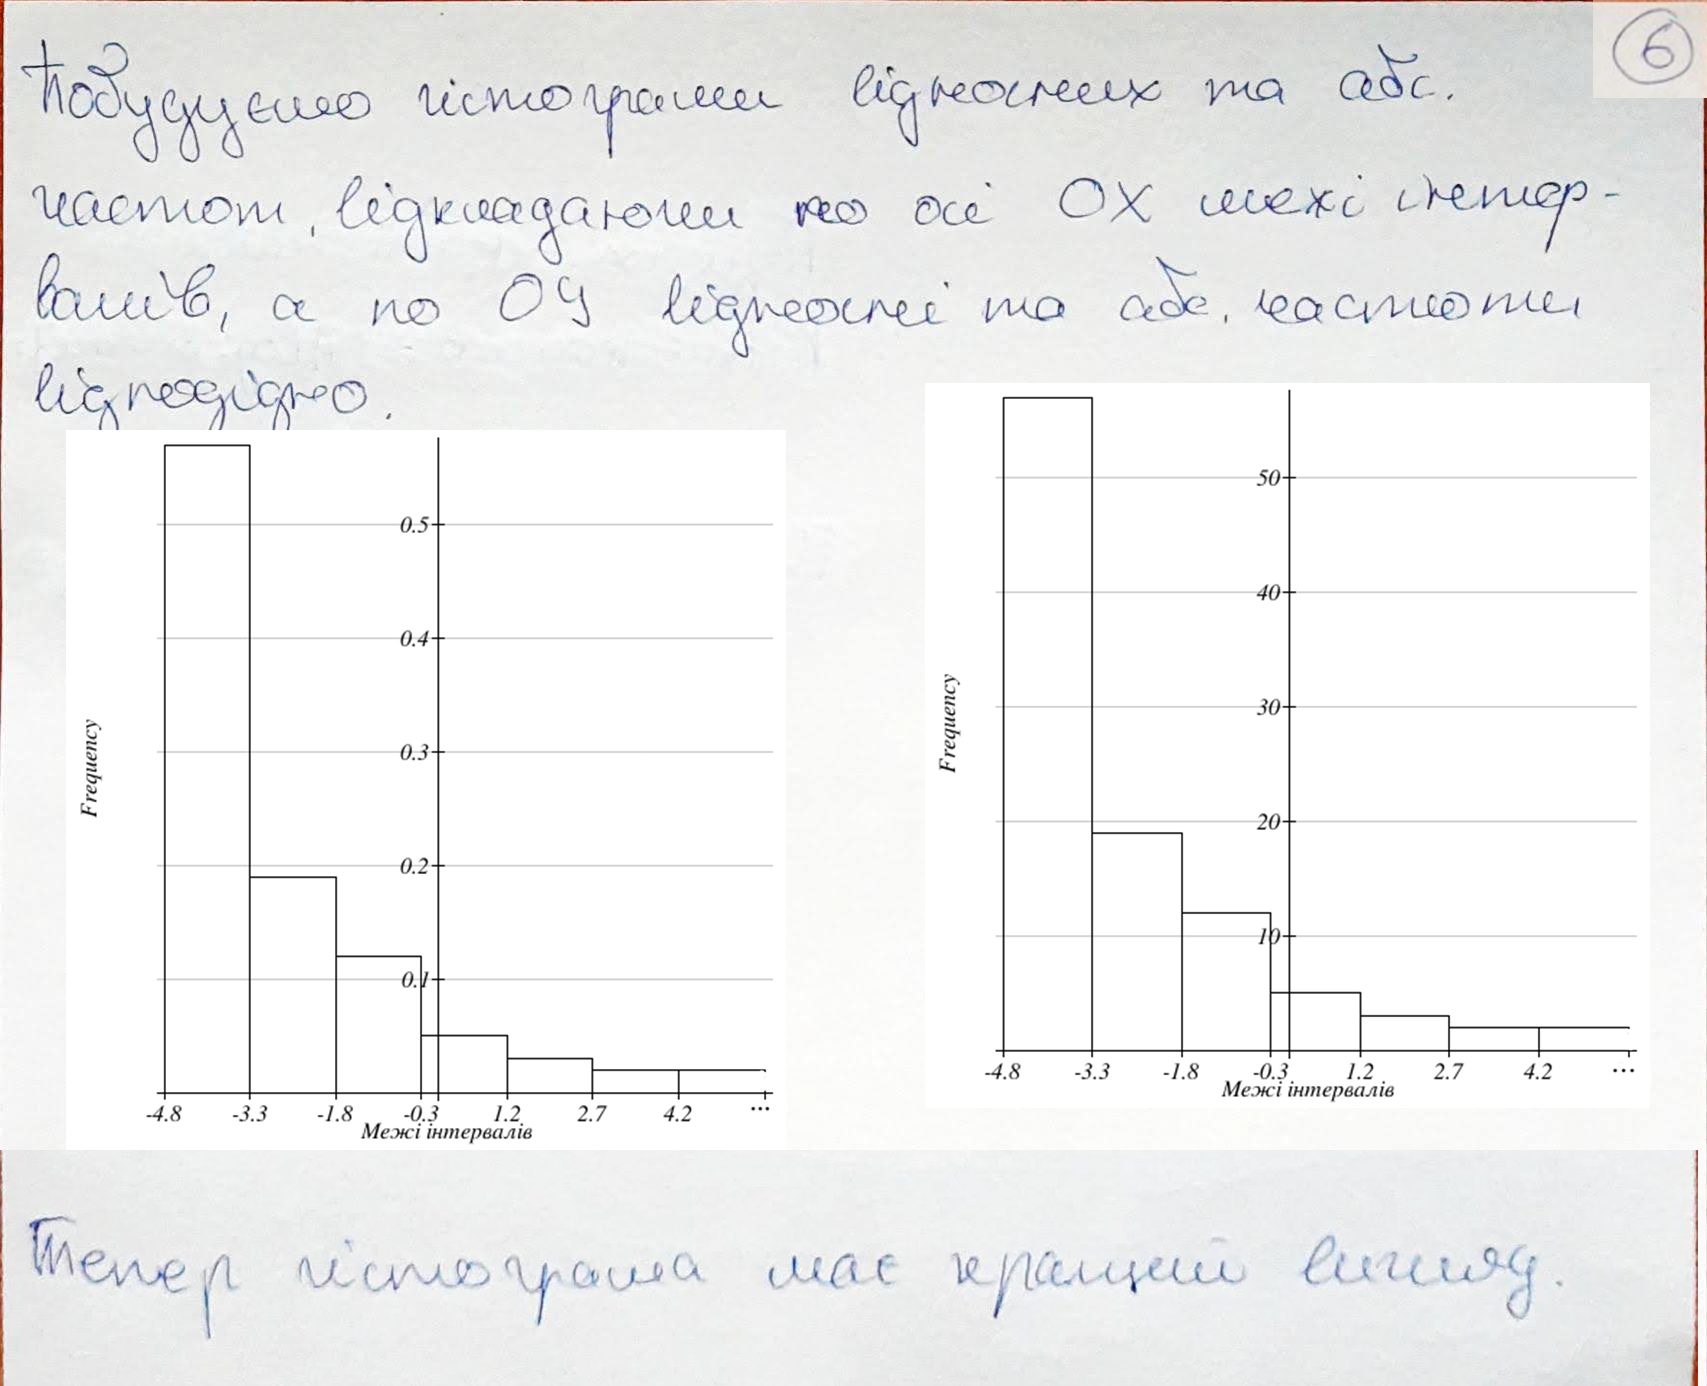 6
Побудуємо гістограми відносних та абс.
частот, відкладаючи по осі OX межі інтер-
валів, а по OY відносні та абс. частоти
відповідно.
0.5
0.4
0.3
0.2
0.1
Frequency
-4.8 -3.3 -1.8 -0.3 1.2 2.7 4.2 ...
Межі інтервалів
50
40
30
20
10
Frequency
-4.8 -3.3 -1.8 -0.3 1.2 2.7 4.2 ...
Межі інтервалів
Тепер гістограма має кращий вигляд.